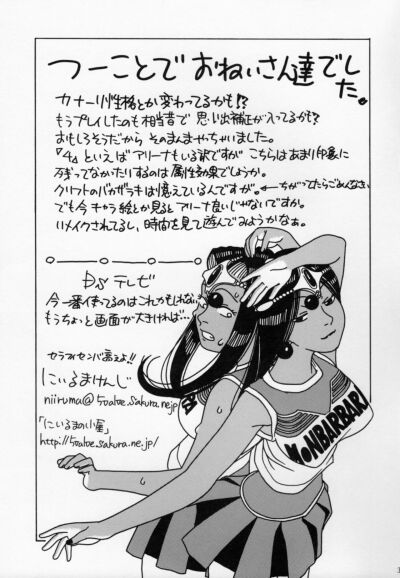 つーことで おねいさん達でした。
カナーリ性格とか変わってるかも!?
もうプレイしたのも相当昔で 思い出補正が入ってるかも?
おもしろそうだから そのまんまやっちゃいました。
『4』といえばアリーナもいる訳ですが こちらはあまり印象に
残ってなかったりするのは属性効果でしょうか。
クリフトのバカザラキは憶えているんですが。←ちがってたらごめんなさい
でも今キャラ絵とか見るとアリーナ良いじゃないですか。
リメイクされてるし、時間を見て遊んでみようかなぁ。
DSテレビ
今一番使ってるのはこれかもしれない…
もうちょっと画面が大きければ…
セラフィセンパ萌えよ!!
にいるまけんじ
niiruma@5oaloe.sakura.ne.jp
「にいるまの小屋」
http://5oaloe.sakura.ne.jp/
MONBARBARA